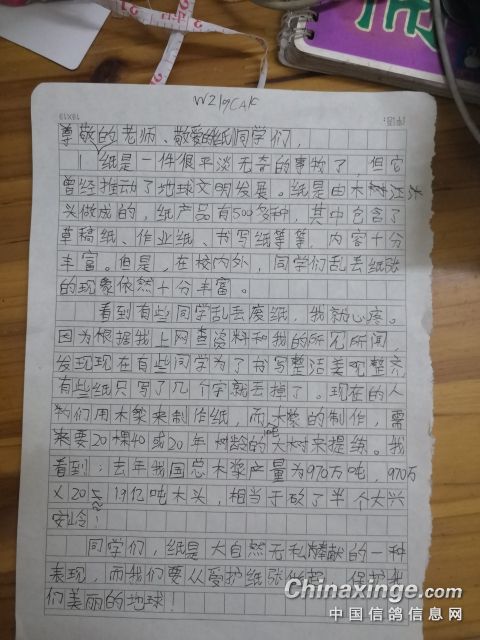 W219CAK
18×19
尊敬的老师、敬爱的同学们,
纸是一件很平淡无奇的事物了,但它
曾经推动了地球文明发展。纸是由木
头做成的,纸产品有500多种,其中包含了
草稿纸、作业纸、书写纸等等,内容十分
丰富。但是,在校内外,同学们乱丢纸张
的现象依然十分丰富。
看到有些同学乱丢废纸,我就心疼。
因为根据我上网查资料和我的所见所闻,
发现现在有些同学为了书写整洁美观整齐
有些纸只写了几个字就丢掉了。现在的人
们用木浆来制作纸,而木浆的制作,需
要20棵40或20年树龄的大树来提练。我
看到:去年我国总木浆产量为970万吨,970万
×20≈1.9亿吨木头,相当于砍了半个大兴
安岭!
同学们,纸是大自然无私奉献的一种
表现,而我们要从爱护纸张做起,保护我
们美丽的地球!
Chinaxinge.com
中国信鸽信息网